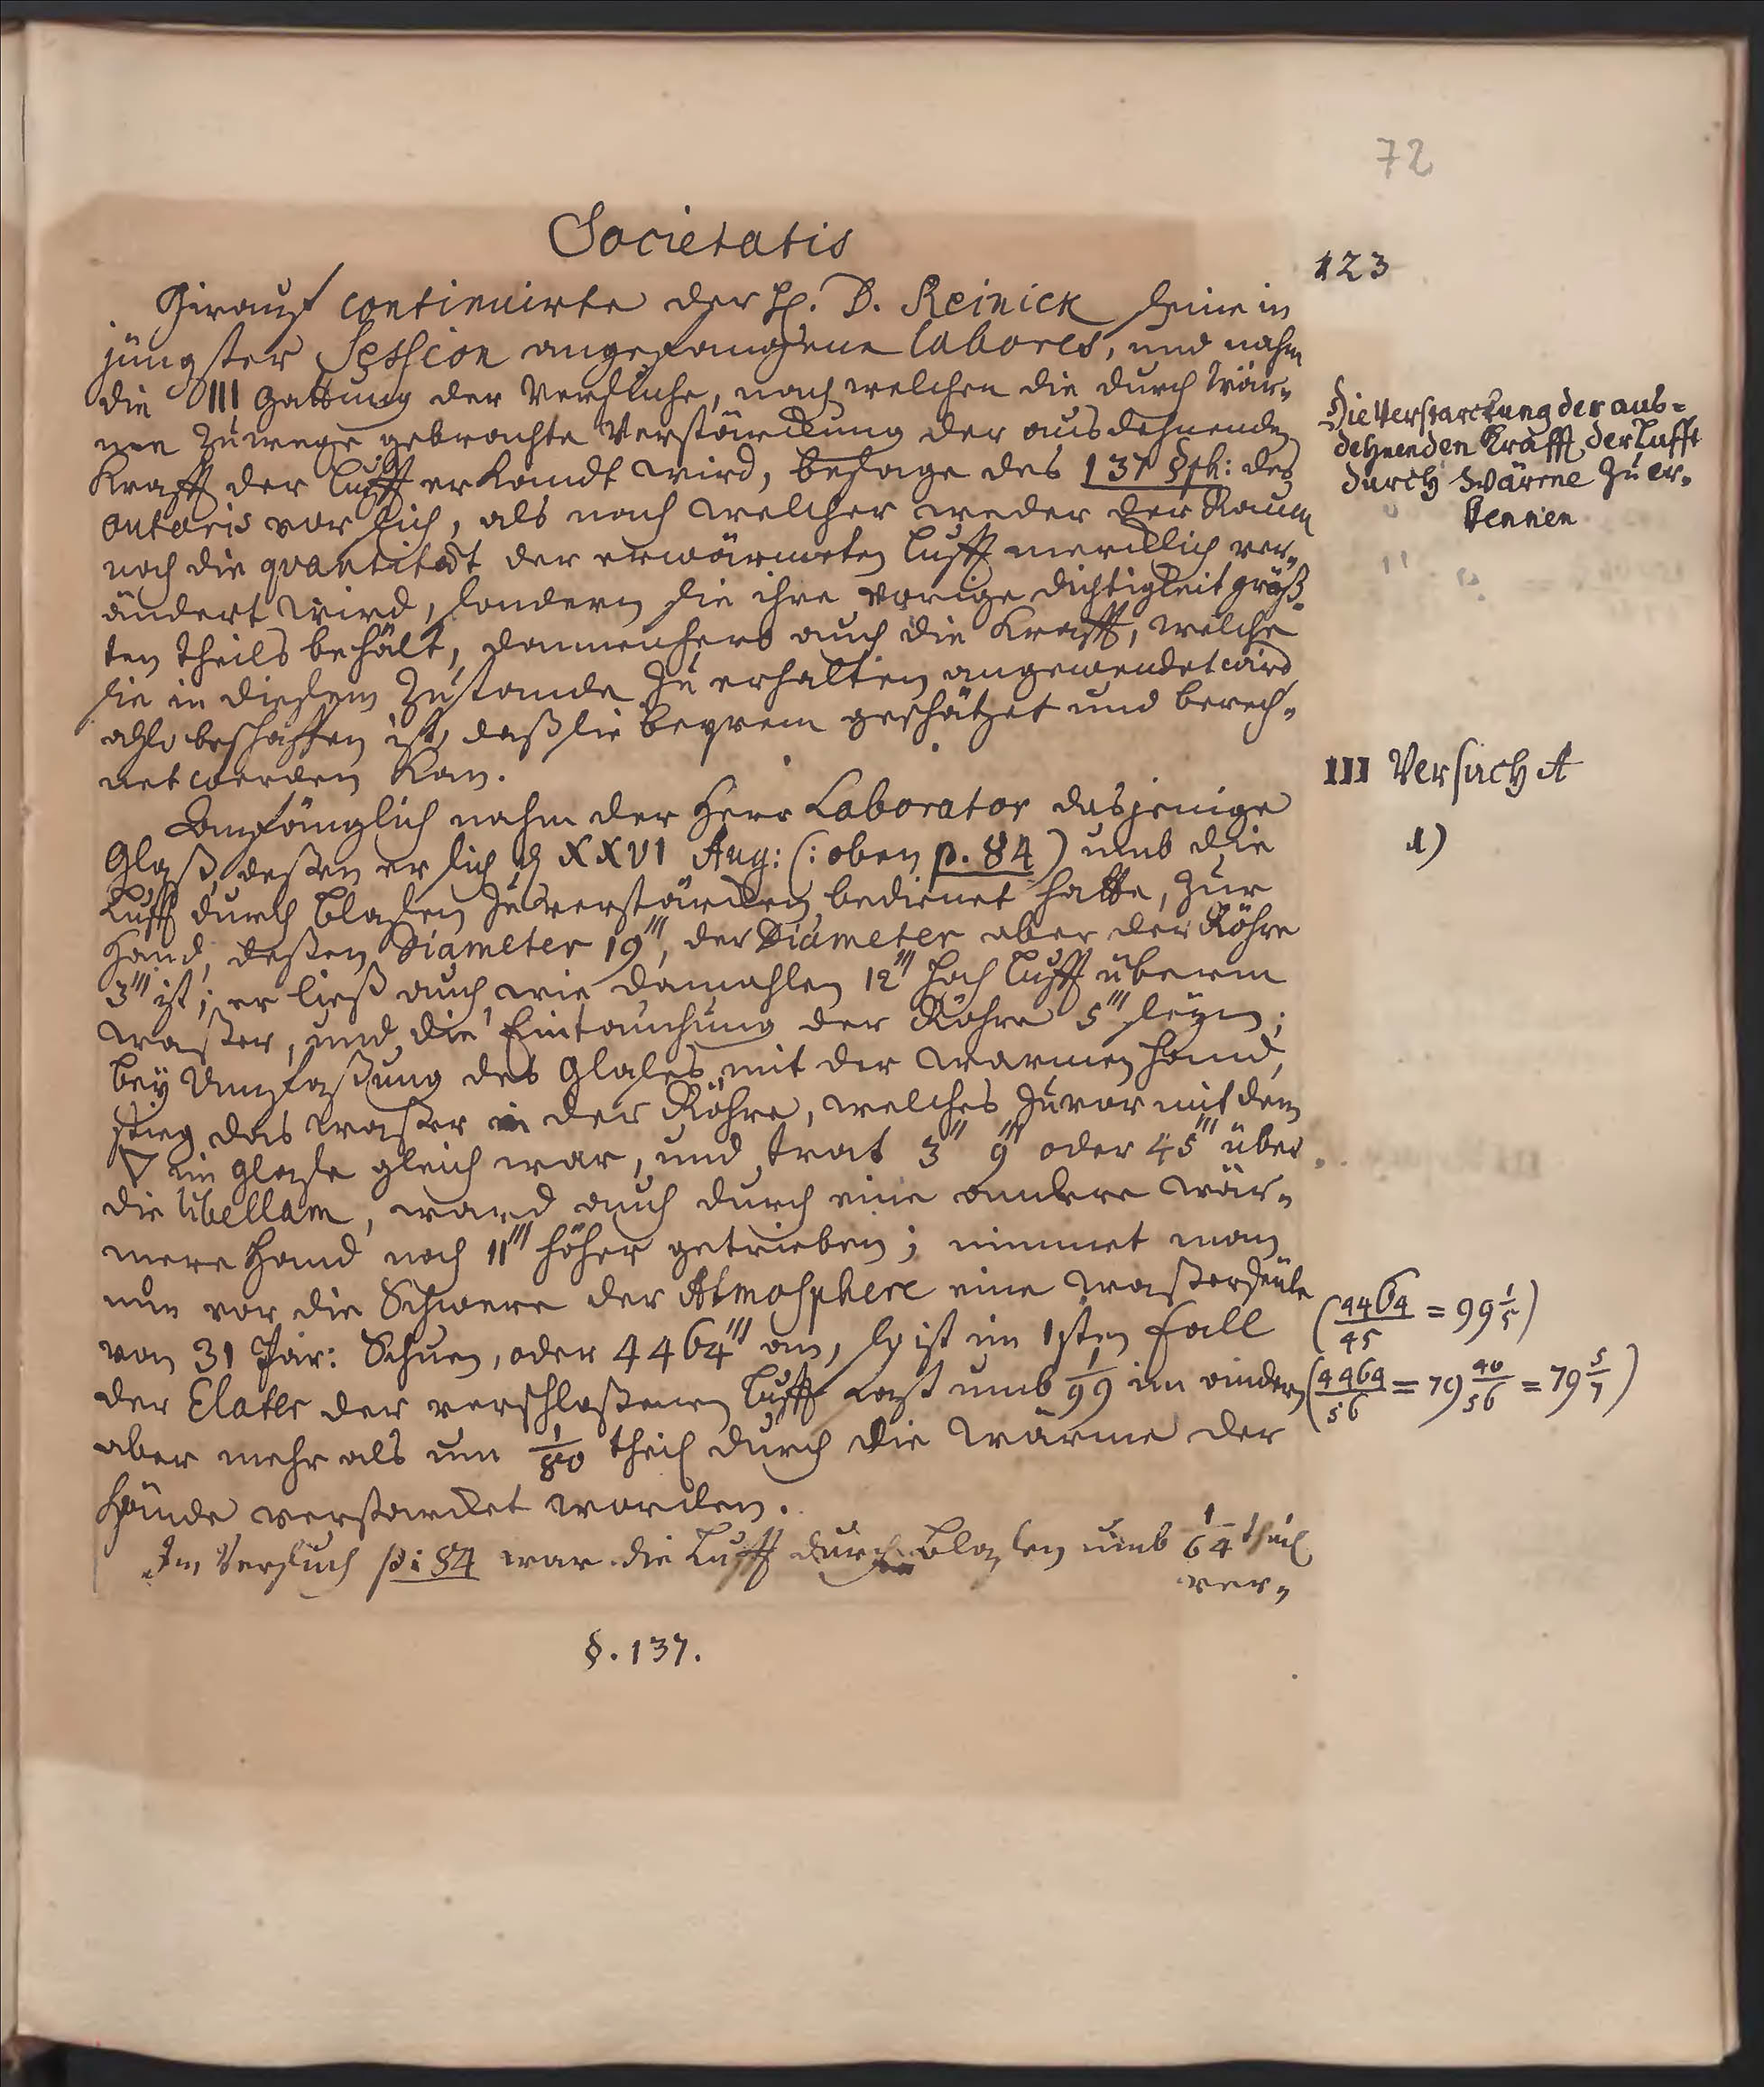 72
Societatis
123
Hierauf continuirte der H. D. Reinick seine in
jüngster Session angefangene labores, und nahm
die III Gattung der Versuche, nach welchen die durch Wär-
me zuwege gebrachte Verstärckung der ausdehnenden
Krafft der Lufft erkandt wird, besage des 137 §ph: des
autoris vor sich, als nach welcher weder der Raum
noch die quantität der erwärmeten Lufft mercklich ver-
ändert wird, sondern sie ihre vorige Dichtigkeit größ-
ten theils behält, dannenhero auch die Krafft, welche
sie in diesem Zustande zu erhalten angewendet wird
also beschaffen ist, daß sie beqvem geschätzet und berech-
net werden kan.
Die Verstarckung der aus-
dehnenden Krafft der Lufft
durch Wärme zu er-
kennen
III Versuch A
1)
Anfänglich nahm der Herr Laborator dasjenige
Glaß, deßen er sich d XXVI Aug: (: oben p. 84) umb die
Lufft durch blasen zu verstärcken bedienet hatte, zur
Hand, deßen Diameter 19''', der Diameter aber der Röhre
3''' ist; er ließ auch wie damahlen 12''' hoch Lufft überm
waßer, und die Eintauchung der Röhre 5''' seyn;
bey Umfaßung des Glases mit der warmen Hand,
stieg das waßer in der Röhre, welches zuvor mit dem
▽ im Glase gleich war, und trat 3'' 9''' oder 45''' über
die libellam, ward auch durch eine andere wär-
mere Hand noch 11''' höher getrieben; nimmet man
nun vor die Schwere der Atmosphere eine Waßerseule
von 31 Par: Schuen, oder 4464''' an, so ist im 1sten Fall
der Elater der verschloßenen Lufft fast umb 1/99 im andern
aber mehr als um 1/80 theil durch die Wärme der
Hände verstarcket worden.
(4464/45 = 99 1/5)
(4464/56 = 79 40/56 = 79 5/7)
Im Versuch p: 84 war die Lufft durch blasen umb 1/64 theil
ver-
§. 137.